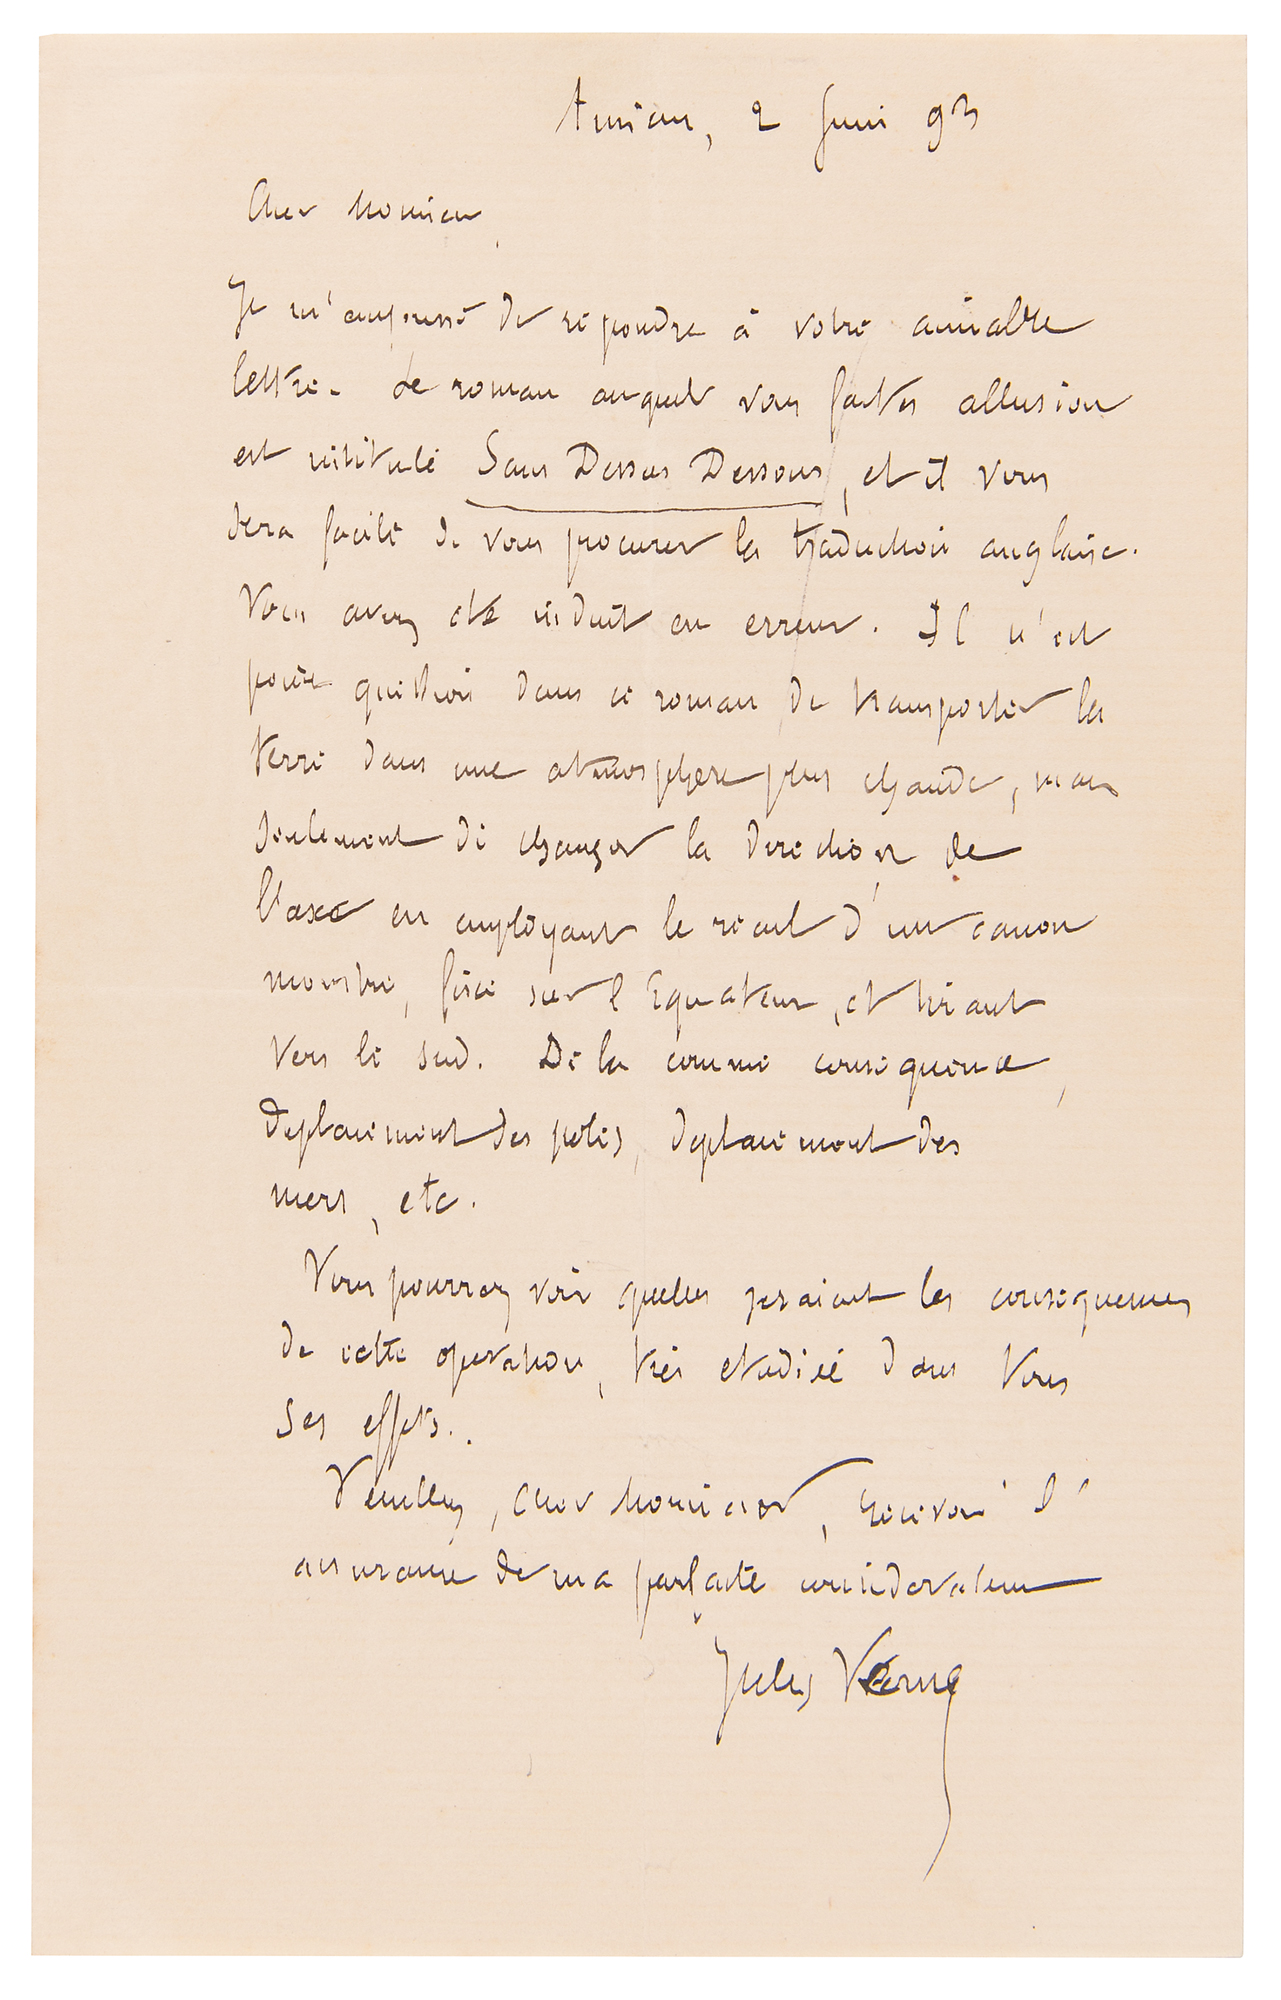 Amiens, 2 Juin 93
Cher Monsieur,
Je m'empresse de répondre à votre aimable
lettre. Le roman auquel vous faites allusion
est intitulé Sans Dessus Dessous, et il vous
sera facile de vous procurer la traduction anglaise.
Vous avez été induit en erreur. Il n'est
point question dans ce roman de transporter la
terre dans une atmosphère plus chaude, mais
seulement de changer la direction de
l'axe en employant le recul d'un canon
monstre, fixé sur l'Equateur, et tirant
vers le sud. De la comme conséquence,
déplacement des pôles, déplacement des
mers, etc.
Vous pourrez voir quelles seraient les conséquences
de cette opération, très étudiée dans tous
ses effets.
Veuillez, cher Monsieur, recevoir l'
assurance de ma parfaite considération
Jules Verne